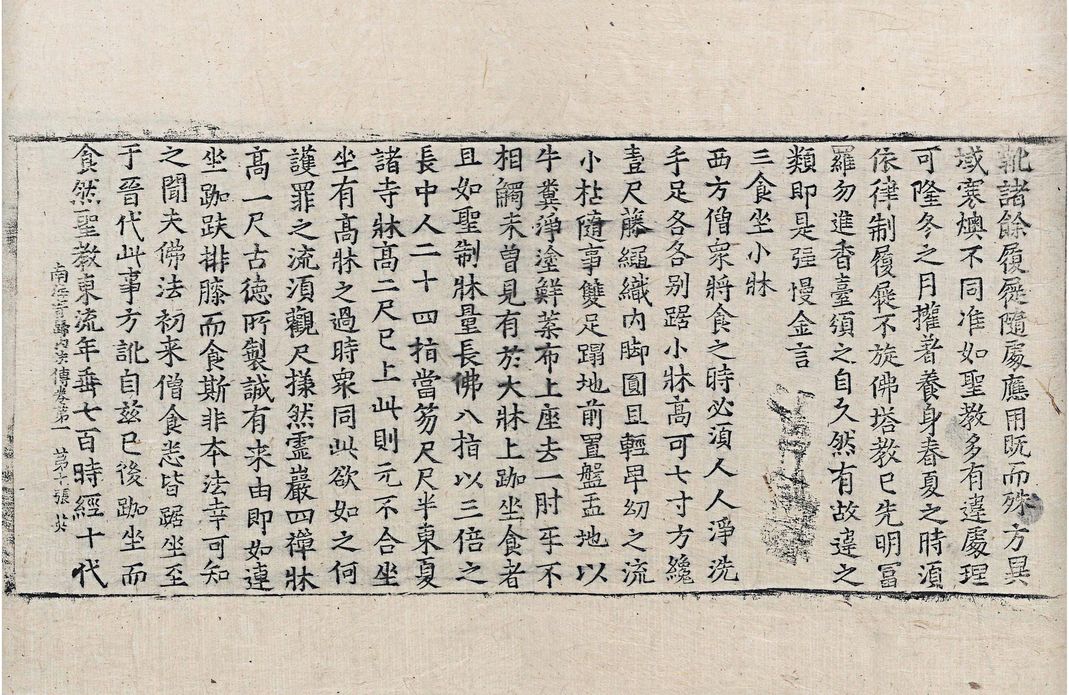 靴諸餘履屣隨處應用既而殊方異
域寒燠不同准如聖教多有違處理
可隆冬之月攉著養身春夏之時湏
依律制履屣不旋佛塔教已先明富
羅勿進香臺頒之自久然有故違之
類即是强慢金言
三食坐小牀
西方僧衆將食之時必湏人人淨洗
手足各各别踞小牀高可七寸方纔
壹尺藤繩織内脚圓且輕卑幼之流
小枯隨事雙足蹋地前置盤盂地以
牛糞淨塗鮮菜布上座去一肘乎不
相觸未曽見有於大牀上跏坐食者
且如聖制牀量長佛八指以三倍之
長中人二十四指當笏尺尺半東夏
諸寺牀髙二尺已上此則元不合坐
坐有髙牀之過時衆同此欲如之何
護罪之流湏觀尺㨾然靈巖四禪牀
髙一尺古徳所製誠有来由即如連
坐跏趺排膝而食斯非本法幸可知
之聞夫佛法初来僧食悉皆踞坐至
于晉代此事方訛自兹已後跏坐而
食然聖教東流年垂七百時經十代
南海寄歸内法傳卷第一　第七張　英